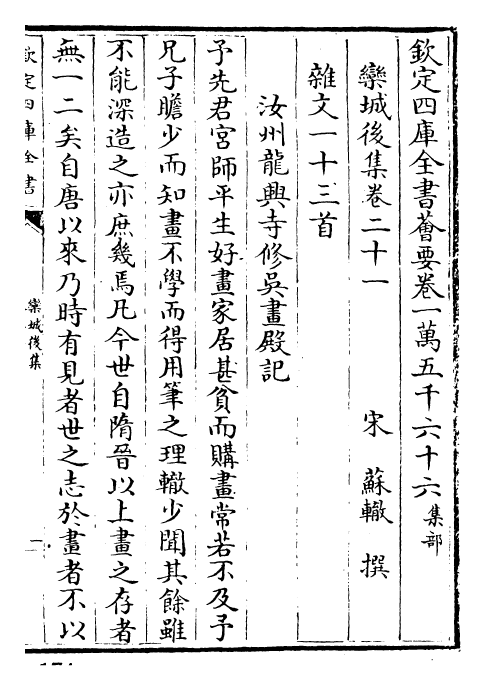 欽定四庫全書薈要卷一萬五千六十六集部
欒城後集卷二十一 宋 蘇轍 撰
雜文一十三首
汝州龍興寺修吳畫殿記
予先君宮師平生好畫家居甚貧而購畫常若不及予
兄子瞻少而知畫不學而得用筆之理轍少聞其餘雖
不能深造之亦庶幾焉凡今世自隋晉以上畫之存者
無一二矣自唐以來乃時有見者世之志於畫者不以
欽定四庫全書
欒城後集
一